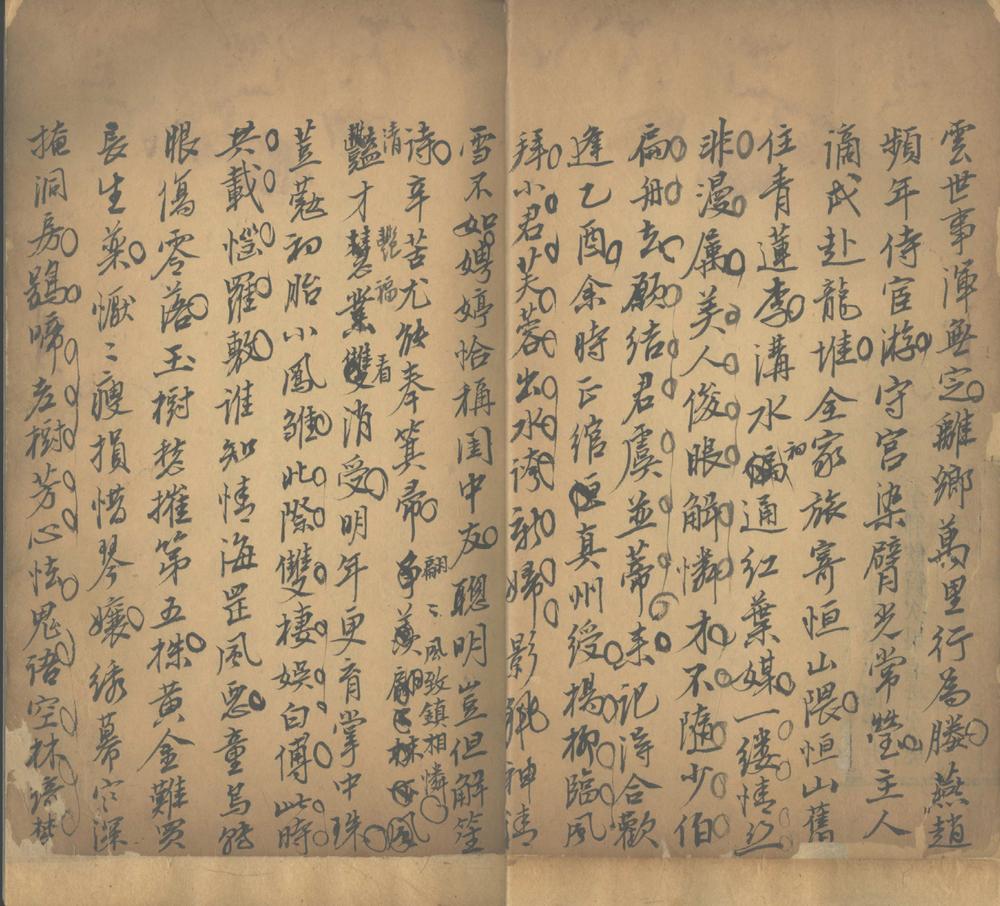 雲世事渾無定離鄉萬里行為媵燕趙
頻年侍宦游守宮染臂光常瑩主人
謫戍赴龍堆全家旅寄恒山隈恒山舊
住青蓮李溝水初通紅葉媒一縷情絲
非漫屬美人俊眼解憐才不隨少伯
扁舟去願結君虞並蒂來記得合歡
逢乙酉余時正綰真州綬楊柳臨風
拜小君芙蓉出水誇新婦影神清
雪不如娉婷恰稱閨中友聰明豈但解筌
詩辛苦尤能奉箕帚翩〻風致鎮相憐
清才艷福看雙消受明年更育掌中珠
荳蔻初胎小鳳雛此際雙棲娛白傅此時
共載惱羅敷誰知情海罡風惡童烏
眼傷零落玉樹愁摧第五株黃金難買
長生藥懨〻瘦損惜琴孃綉幕深
掩洞房鵑啼老樹芳心怯鬼語空林